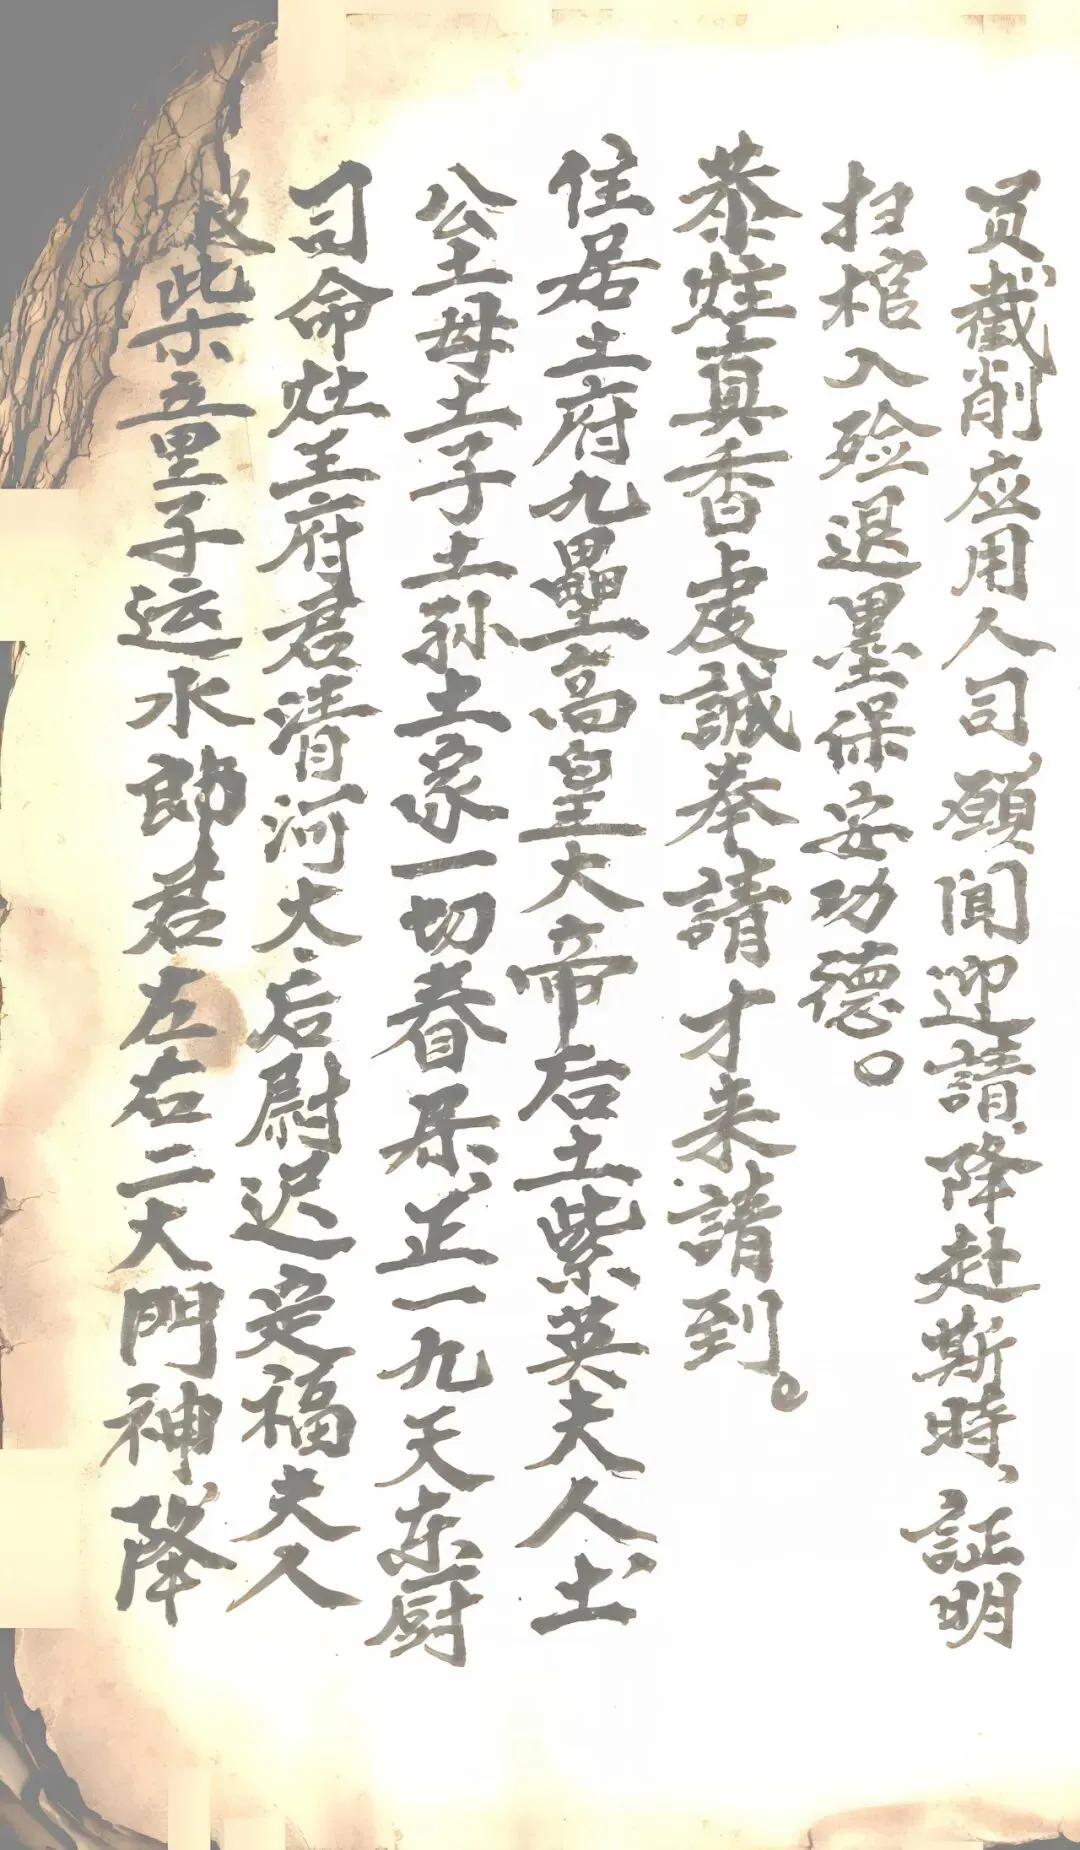 員截削应用人司、願聞迎請、降赴斯時、証明
扫棺入殓退墨保安功德。
恭炷真香虔誠奉請才来請到。
住居土府九壘高皇大帝后土紫英夫人土
公土母土子土孙土家一切眷属、正一九天东厨
司命灶王府君清河大后尉迟定福夫人
柴童里子运水郎君左右二大門神、降